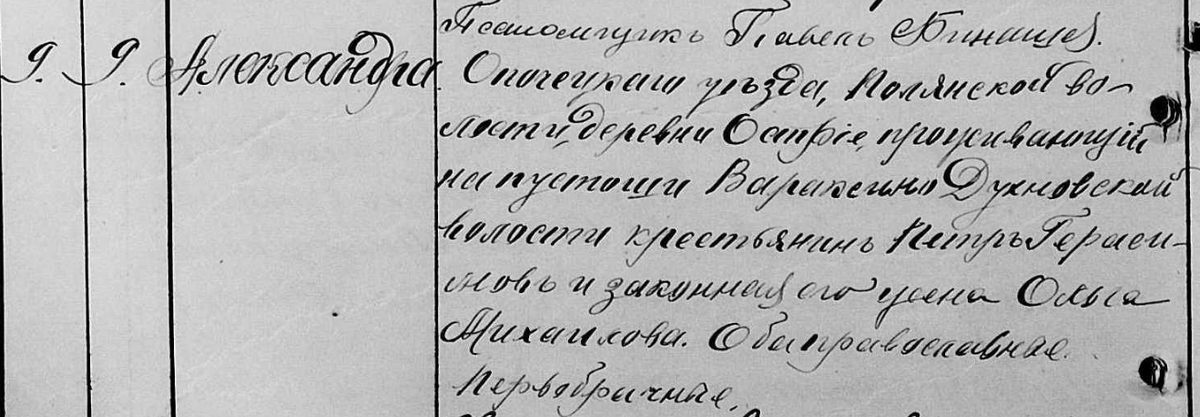 Псаломщикъ Павелъ
9. 9. Александра. Опочецкаго уѣзда, Полянской во-
лости, деревни Острiе, проживающiй
на пустоши Вараксино Духновской
волости крестьянинъ Петръ Гераси-
мовъ и законная его жена Ольга
Михаилова. Оба православные.
Первобрачные.